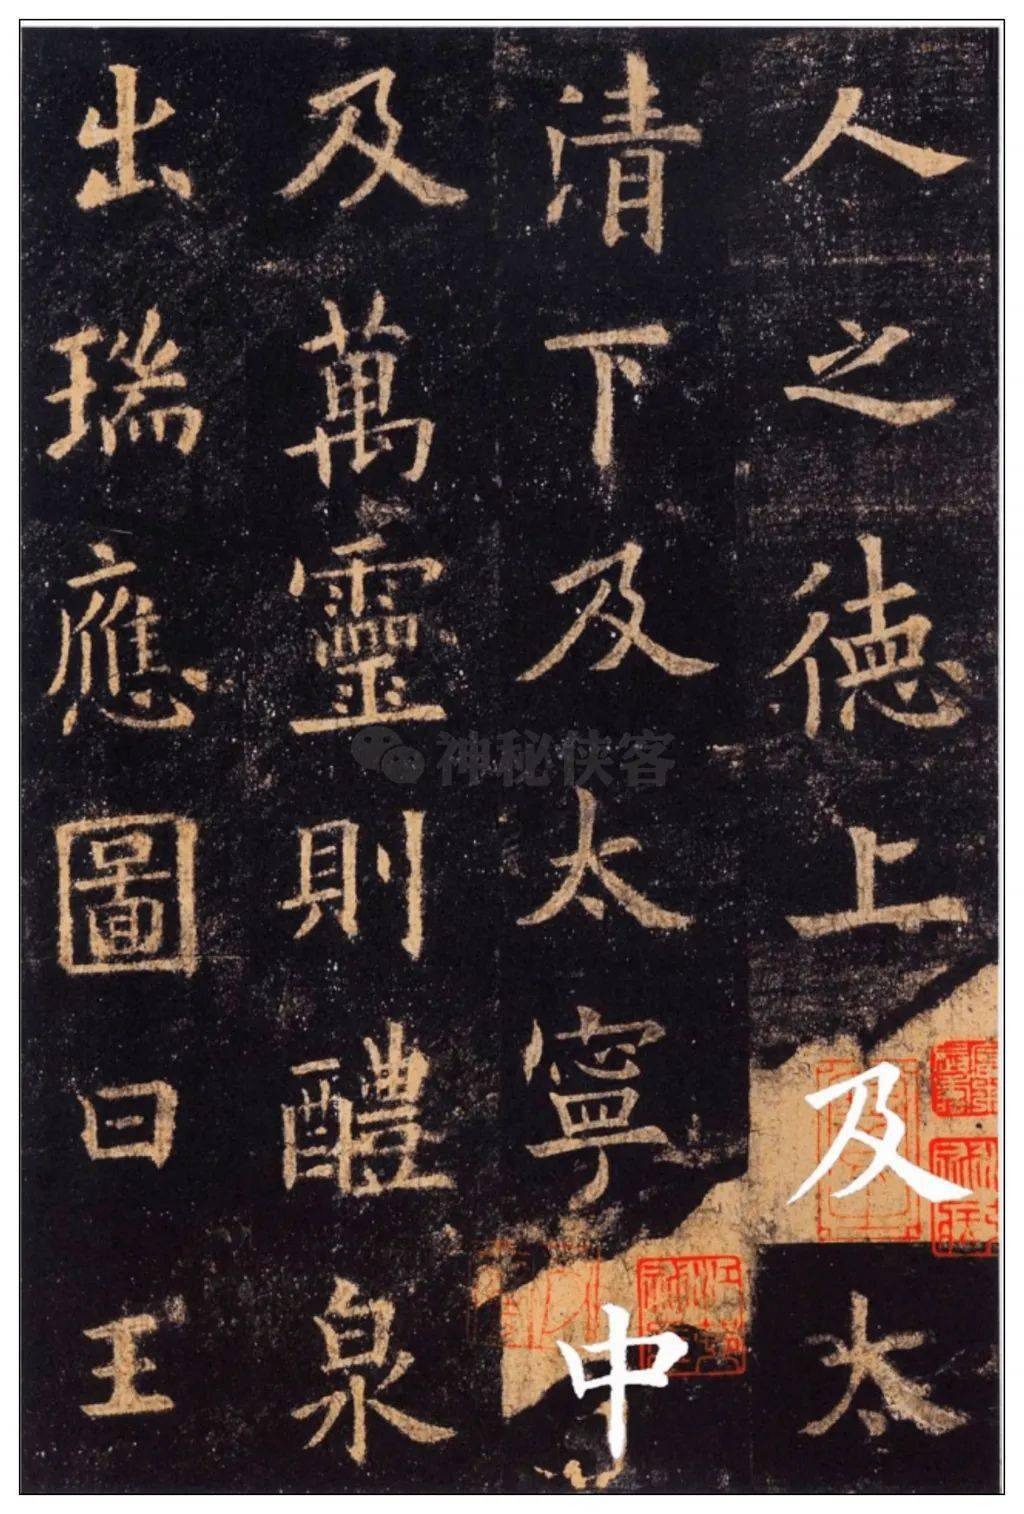 人之德上及太
清下及太寧中
及萬靈則醴泉
出瑞應圖曰王
神秘侠客